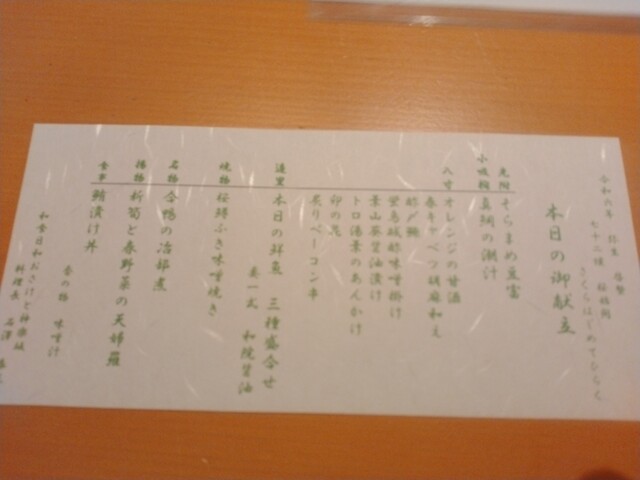 令和六年 弥生
七十二候 桜始開
さくらはじめてひらく
本日の御献立
先附 そらまめ豆富
小吸物 真鯛の潮汁
八寸 オレンジの甘酒
春キャベツ胡麻和え
酢〆鰯
蛍烏賊酢味噌掛け
葉山葵醤油漬け
トロ湯葉のあんかけ
卯の花
炙りベーコン串
造里 本日の鮮魚 三種盛合せ
妻一式 和院醤油
焼物 桜鱒ふき味噌焼き
名物 合鴨の治部煮
揚物 新筍と春野菜の天婦羅
食事 鮪漬け丼
香の物 味噌汁
和食日和おさけと神楽坂
料理長